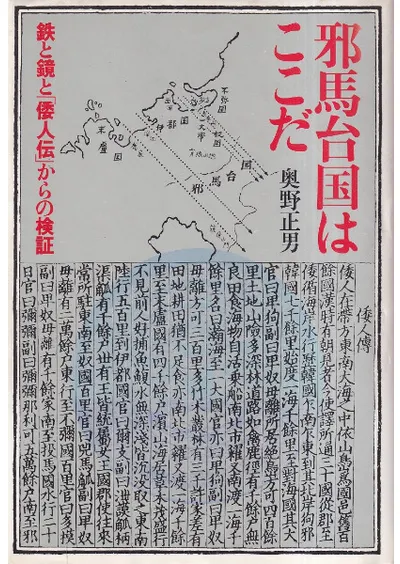 邪馬台国は
ここだ
奥野正男
鉄と鏡と「倭人伝」からの検証
不弥国
奴国
伊都国
末盧国
邪馬台国
倭人傳
倭人在帶方東南大海之中依山㠀爲國邑舊百
餘國漢時有朝見者今使譯所通三十國從郡至
倭循海岸水行歷韓國乍南乍東到其北岸狗邪
韓國七千餘里始度一海千餘里至對海國其大
官曰卑狗副曰卑奴母離所居絶㠀方可四百餘
里土地山險多深林道路如禽鹿徑有千餘戶無
良田食海物自活乗船南北市糴又南渡一海千
餘里名曰瀚海至一大國官亦曰卑狗副曰卑奴
母離方可三百里多竹木叢林有三千許家差有
田地耕田猶不足食亦南北市糴又渡一海千餘
里至末盧國有四千餘戶濱山海居草木茂盛行
不見前人好捕魚鰒水無深淺皆沉没取之東南
陸行五百里到伊都國官曰爾支副曰泄謨觚柄
渠觚有千餘戶世有王皆統屬女王國郡使往來
常所駐東南至奴國百里官曰兕馬觚副曰卑奴
母離有二萬餘戶東行至不彌國百里官曰多模
副曰卑奴母離有千餘家南至投馬國水行二十
日官曰彌彌副曰彌彌那利可五萬餘戶南至邪